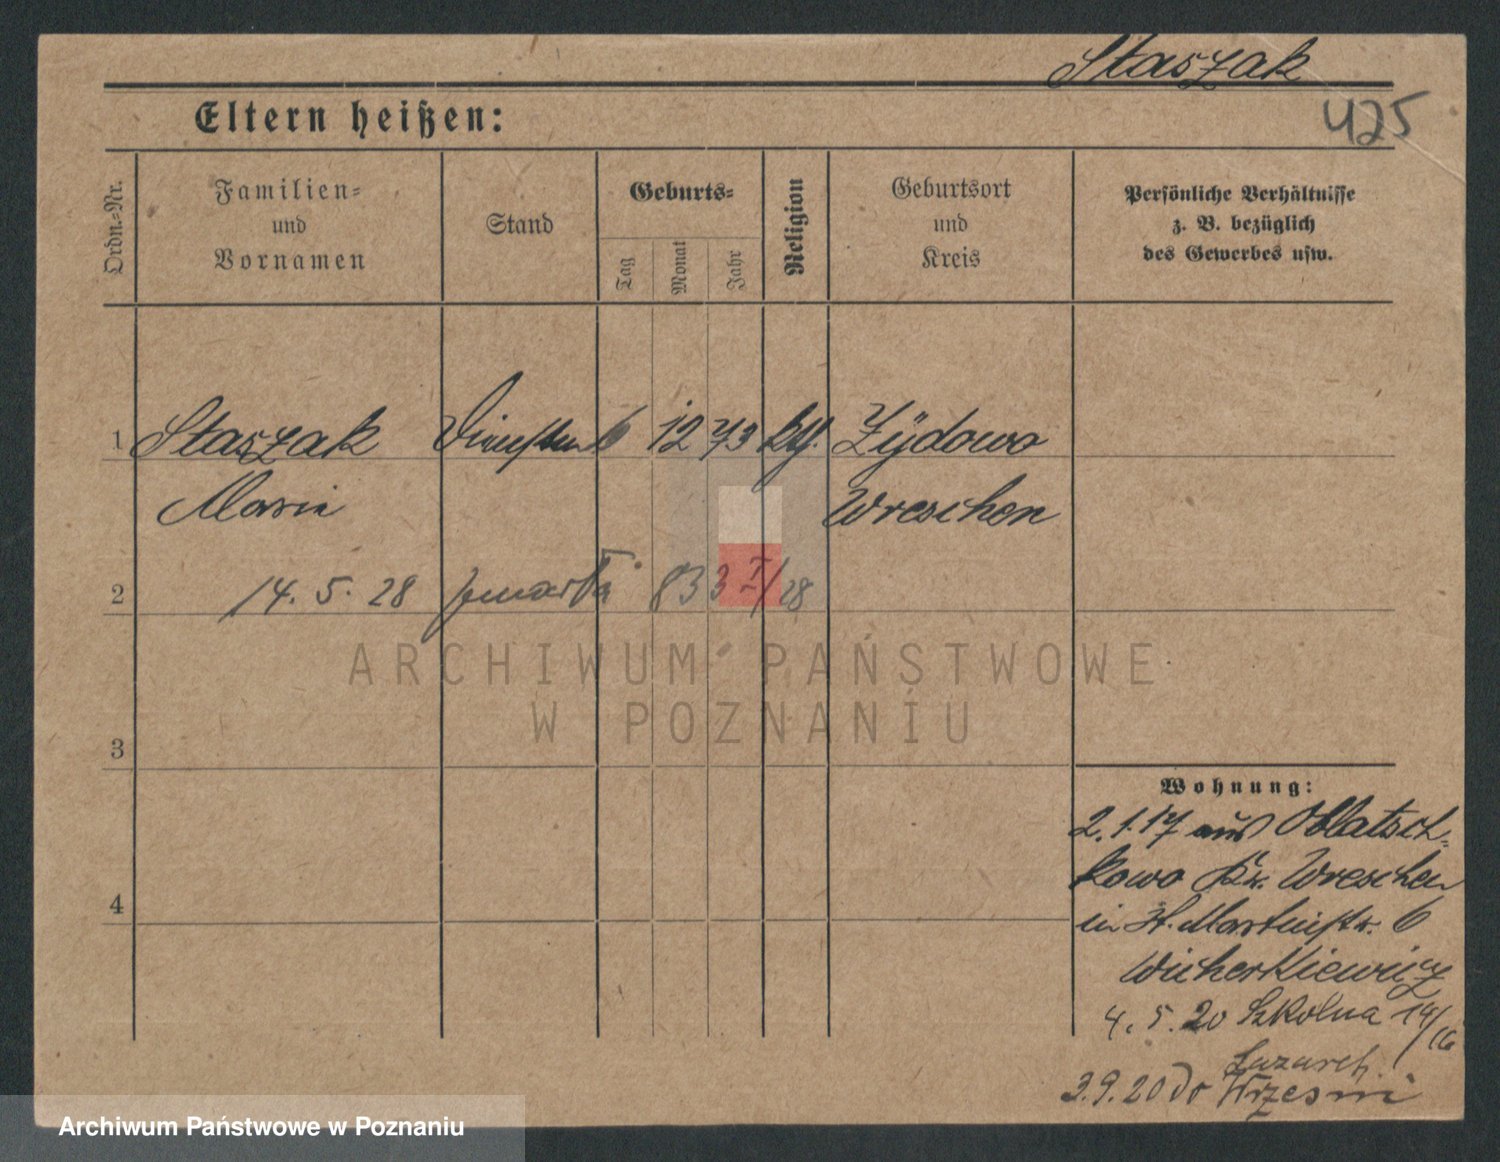 Staszak
425
Eltern heißen:
Ordn.-Nr.
Familien-
und
Vornamen
Stand
Geburts-
Tag
Monat
Jahr
Religion
Geburtsort
und
Kreis
Persönliche Verhältnisse
z. B. bezüglich
des Gewerbes usw.
1 Staszak 6 12 73 kth. Zÿdowo
Marie Wreschen
2 14. 5. 28 zmarła 833 I/28
ARCHIWUM PAŃSTWOWE
W POZNANIU
3
4
Wohnung:
2.1.17 aus Oblatsch-
kowo Kr. Wreschen
in St. Martinstr. 6
Wicherkiewicz
4. 5. 20 Szkolna 14/16
Lazareth
3.9.20 do Wrzesni
Archiwum Państwowe w Poznaniu